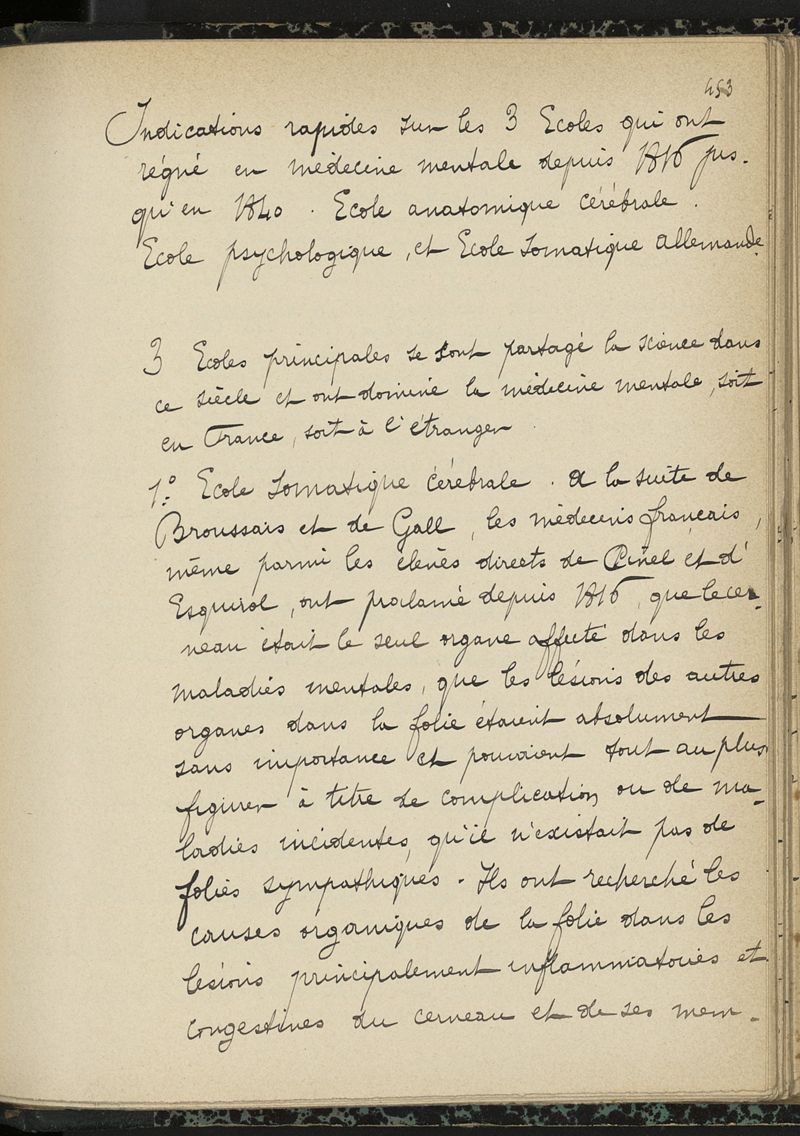 453
Indications rapides sur les 3 Ecoles qui ont
régné en médecine mentale depuis 1816 jus-
qu'en 1840. Ecole anatomique cérébrale.
Ecole psychologique, et Ecole somatique allemande.
3 Ecoles principales se sont partagé la science dans
ce siècle et ont dominé la médecine mentale, soit
en France, soit à l'étranger.
1.° Ecole somatique cérébrale. A la suite de
Broussais et de Gall, les médecins français,
même parmi les élèves directs de Pinel et d'
Esquirol, ont proclamé depuis 1816, que le cer-
veau était le seul organe affecté dans les
maladies mentales, que les lésions des autres
organes dans la folie étaient absolument
sans importance et pouvaient tout au plus
figurer à titre de complication ou de ma-
ladies incidentes, qu'il n'existait pas de
folies sympathiques. Ils ont recherché les
causes organiques de la folie dans les
lésions principalement inflammatoires et
congestives du cerveau et de ses mem-